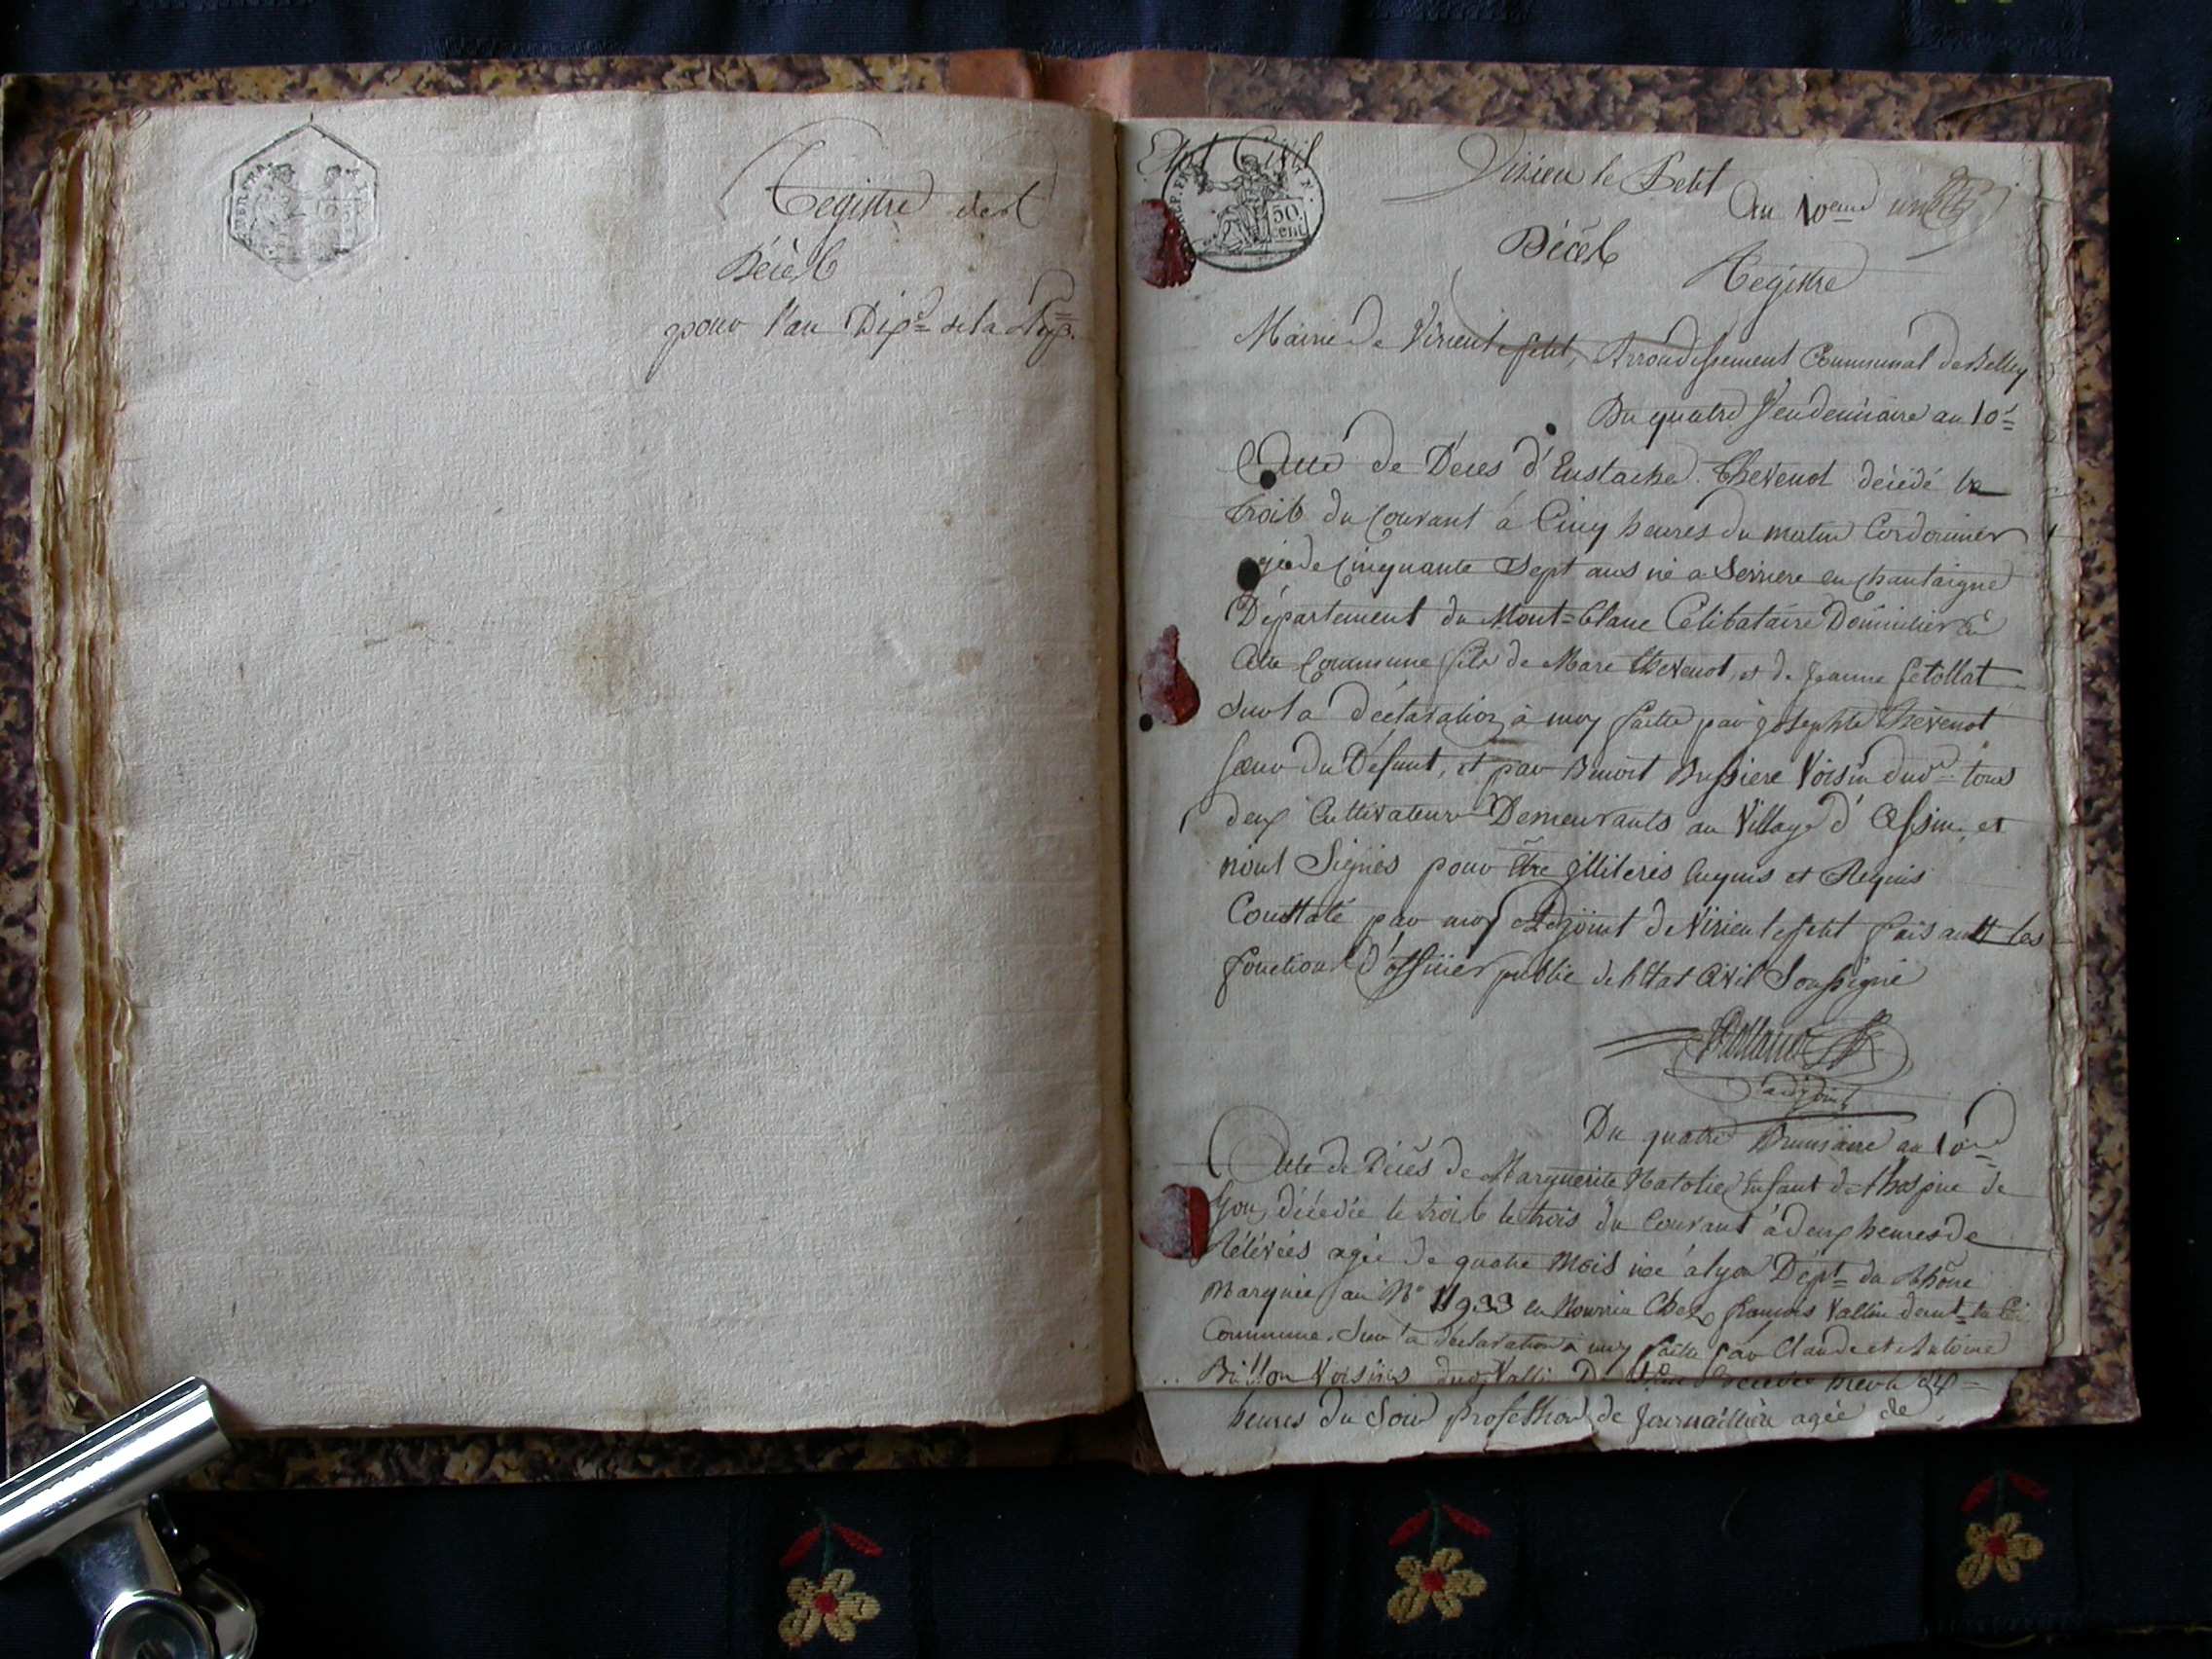 Registre des
Décès
pour l'an Dix.e de la Rep.
Etat Civil
REP. FRA.
50
cent
Virieu le Petit
an 10eme
Décès
Registre
Mairie de Virieu le petit, Arrondissement Communal de Belley
Du quatre Vendemiaire an 10e
Acte de Déces d'Eustache Thevenot décédé le
trois du Courant à Cinq heures du matin Cordonnier
agé de Cinquante Sept ans né a Serriere en Chautaigne
Département du Mont=blanc Célibataire Domicilier en
cette Commune fils de Marc thevenot, et de Jeanne
Sur la déclaration à moy faitte par Josephte thévenot
sœur du Défunt, et par Benoit Bussiere Voisin dud. tous
deux Cultivateurs Demeurants au Village d'Assin, et
n'ont Signés pour être illiterés enquis et Requis
Constaté par moy Adjoint de Virieu le petit faisantt les
fonctions d'officier public de l'Etat Civil Soussigné
adjoint
Du quatre Brumaire an 10me
Acte de Décès de Marguerite Natolie Enfant de thospice de
lyon décédée le trois le trois du Courant à deux heures de
Rélévées agée de quatre Mois née à lyon Dépt. du Rhône
Marquée au No 11933 en Nourrice Chez françois Vallin demt. en la
Commune. Sur la déclaration à moy faitte par Claude et Antoine
Billon Voisins dud. Vallin
heures du Soir profession de Journaillière agée de